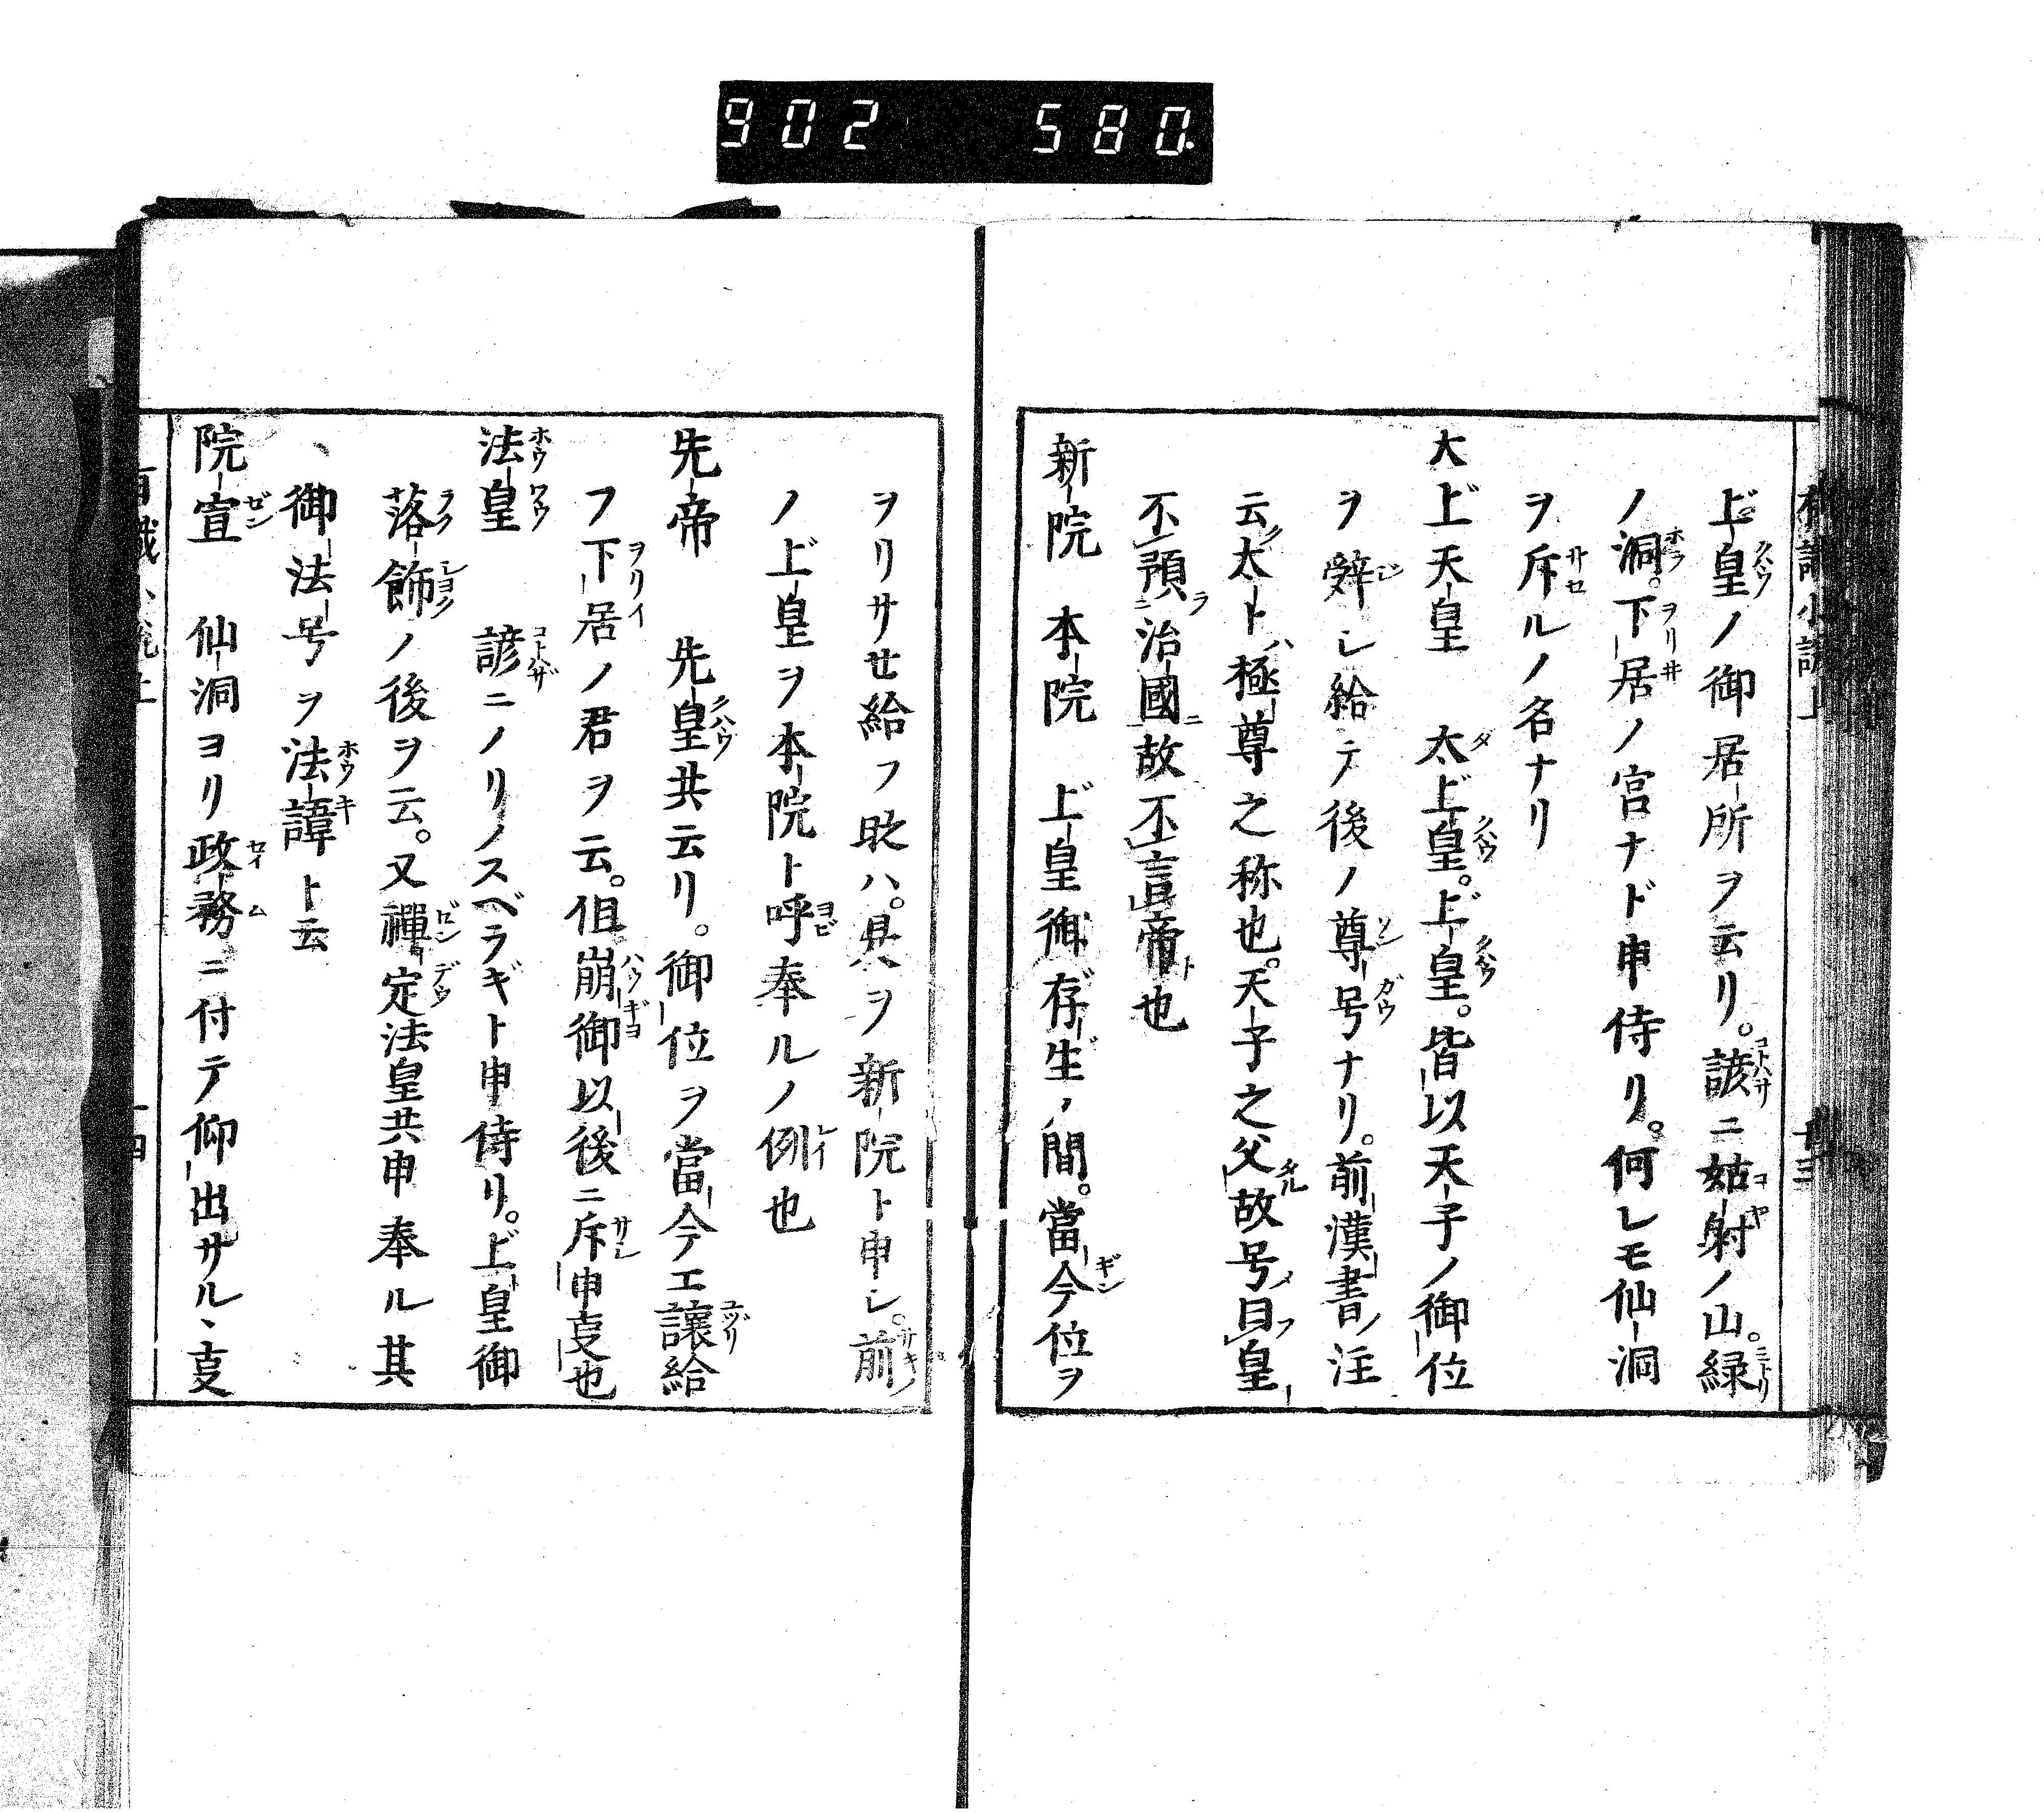 902 580.
上皇ノ御居所ヲ云リ。諺ニ姑射ノ山。緑
ノ洞。下居ノ宮ナド申侍リ。何レモ仙洞
ヲ斥ルノ名ナリ
大上天皇 太上皇。上皇。皆以天子ノ御位
ヲ辤シ給テ後ノ尊号ナリ。前漢書ノ注
云太トハ極尊之称也。天子之父故号曰皇
不預治國故不言帝也
新院 本院 上皇御存生ノ間。當今位ヲ
ヲリサせ給フ時ハ。是ヲ新院ト申シ。前
ノ上皇ヲ本院ト呼奉ルノ例也
先帝 先皇共云リ。御位ヲ當今エ讓給
フ下居ノ君ヲ云。但崩御以後ニ斥申㕝也
法皇 諺ニノリノスベラギト申侍リ。上皇御
落飾ノ後ヲ云。又禪定法皇共申奉ル其
、御法号ヲ法諱ト云
院宣 仙洞ヨリ政務ニ付テ仰出サル、㕝